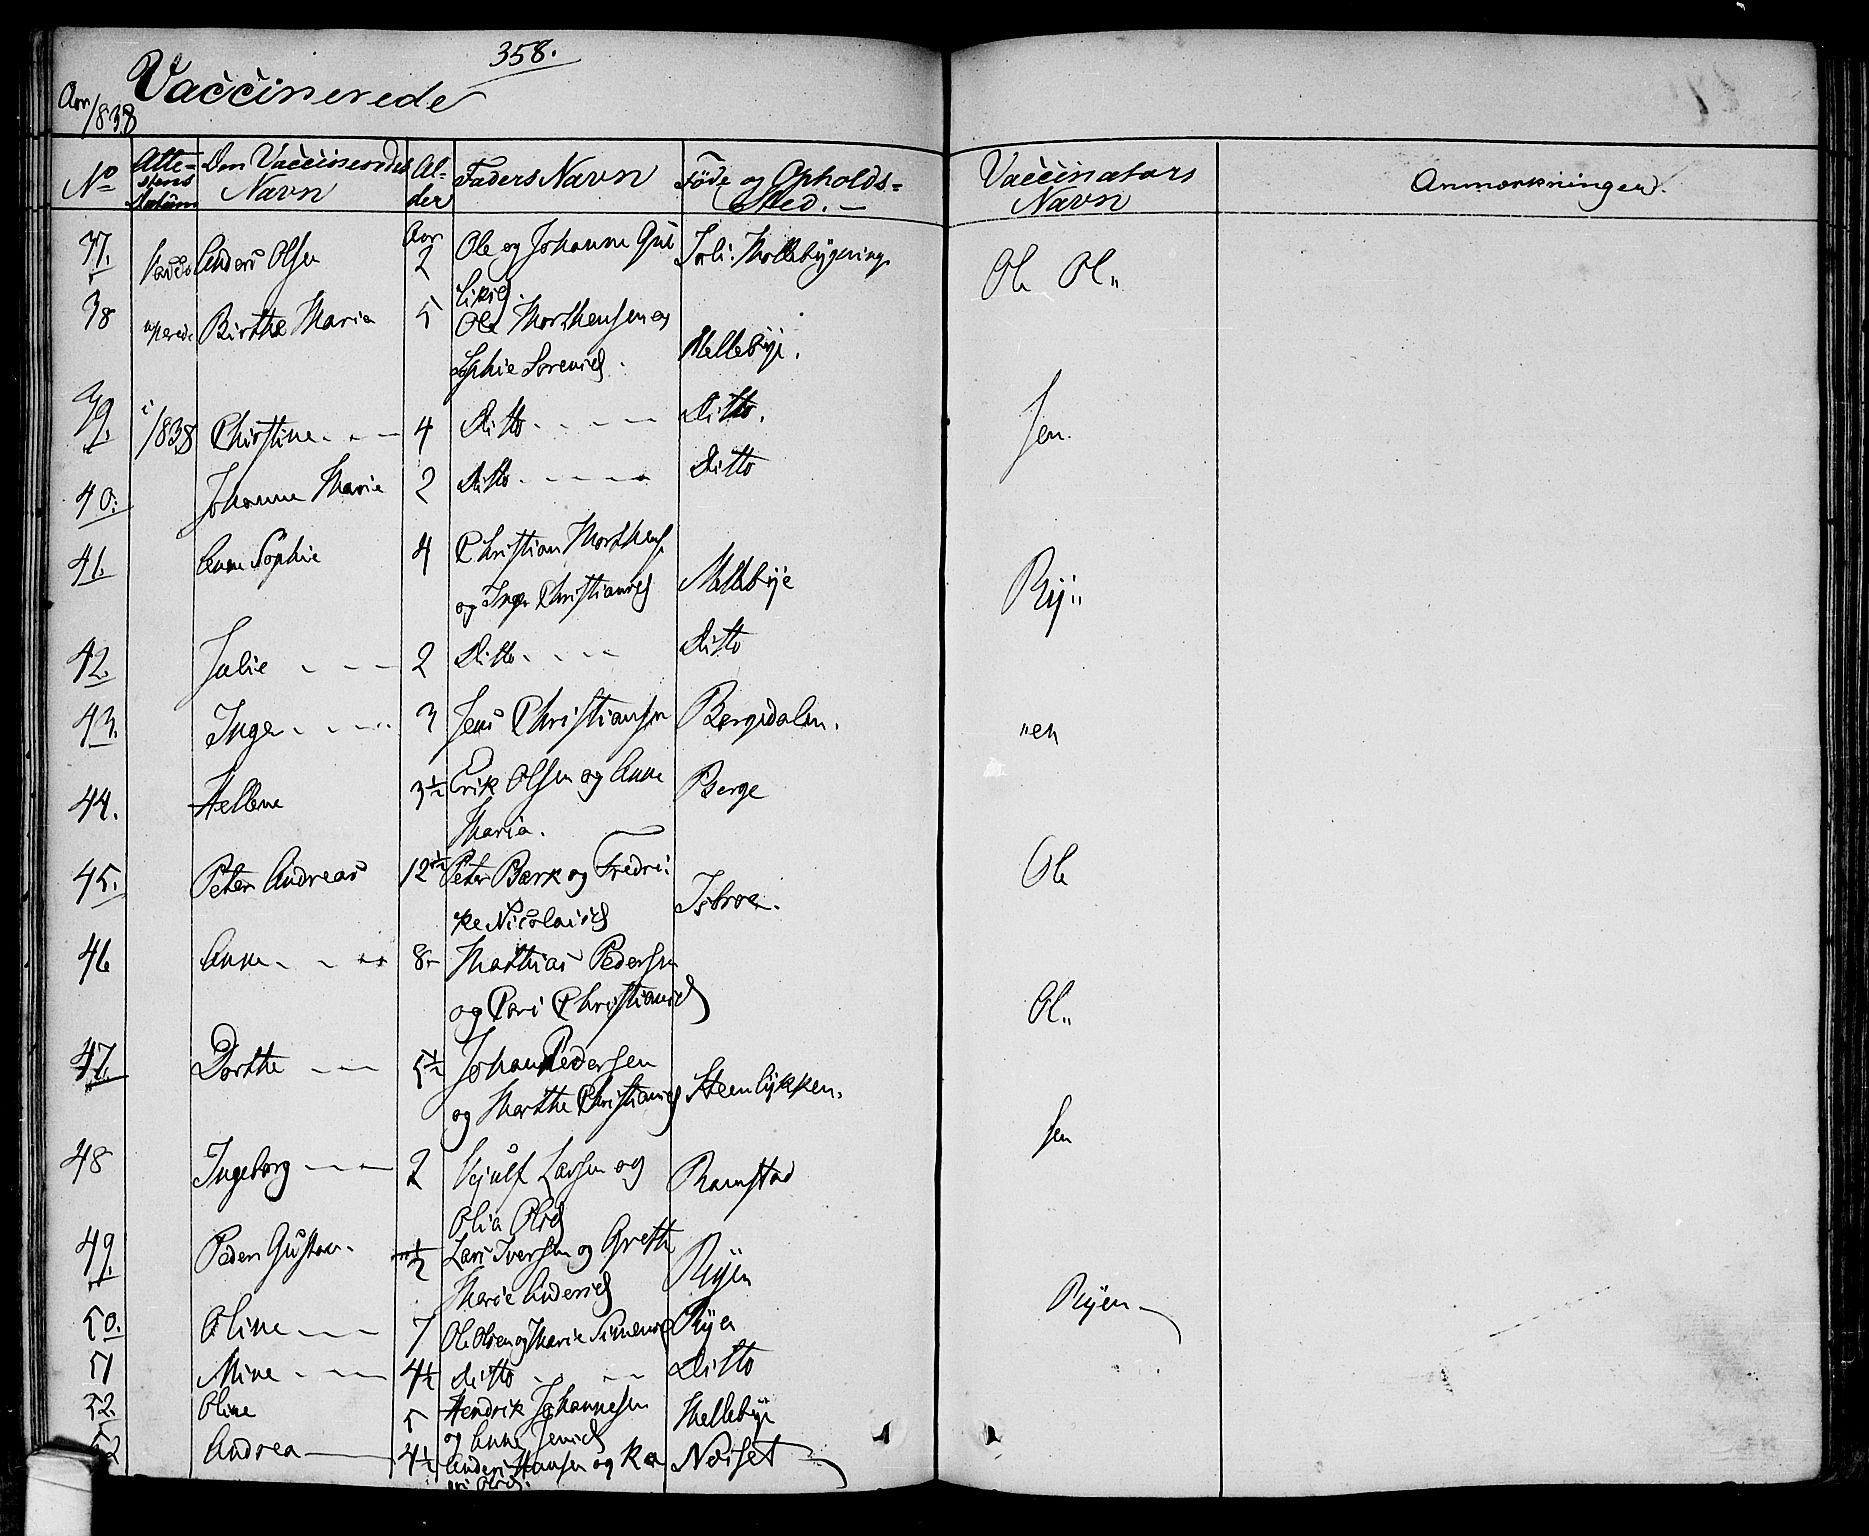 358.
Vaccinerede
Aar 1838
No Attestens Datum Den Vaccineredes Navn Alder Faders Navn Føde og Opholds=Sted. Vaccinators Navn Anmærkninger.
37. Anders Olsen Aar 2 Ole og Johanne Ole Ol„
38 Birthe Maria 5 Ole Morthensen og Mellebye.
Sophie Sörensd.
39. i 1838 Christine 4 Ditto Ditto. sen.
40. Johanne Marie 2 Ditto Ditto
41. Anne Sophie 4 Christian Morthens.
og Inger Christiansd Mellebye Ry„
42. Julie 2 Ditto Ditto
43. Inger 3 Jens Christiansen Bergsdalen. „en
44. Hellene 3½ Erik Olsen og Anne Berge
Maria.
45. Peter Andreas 12½ Peter Bærk og Fredri: Ole
ke Nicolaisd Isbroe.
46 Anne 8 Mathias Pedersen
og Pari Christiansd Ol„
47. Dorthe 5½ Johan Pedersen
og Marthe Christiansd Steenlykken. sen
48 Ingeborg 2 Larsen og Ramstad
Olia Olsd
49. Peder Gustav. ½ Lars Iversen og Grethe Ryen
Marie Andersd Ryen
50. Oline 7 Ole Olsen og Marie Simensd Ryen
51 Mine 4½ ditto Ditto
52. Oline 5 Hendrik Johannesen Mellebye
og Anne Jensd
52 Andrea 4½ Anders Hansen og Ka Noiset
ri Olsd.